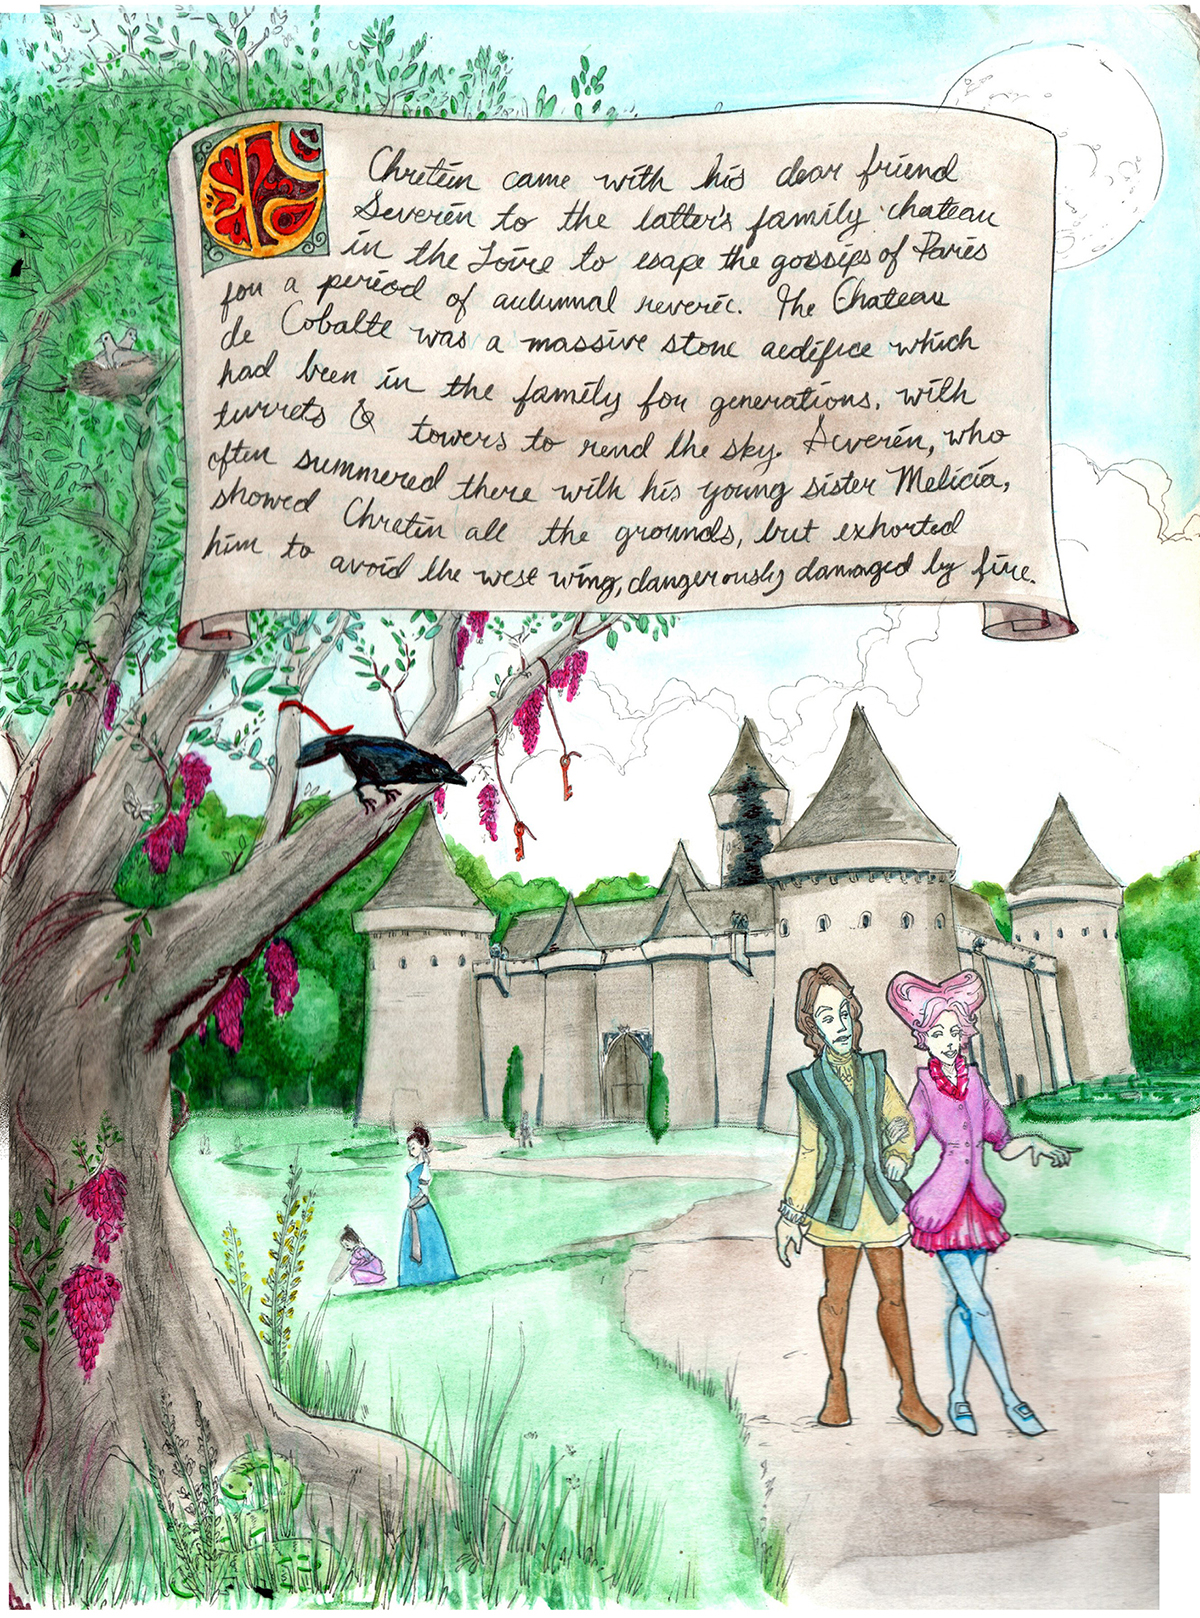 Chretién came with his dear friend
Severén to the latter's family chateau
in the Loire to esape the gossips of Paris
for a period of autumnal reverie. The Chateau
de Cobalte was a massive stone aedifice which
had been in the family for generations, with
turrets & towers to rend the sky. Severén, who
often summered there with his young sister Melicia,
showed Chretién all the grounds, but exhorted
him to avoid the west wing, dangerously damaged by fire.